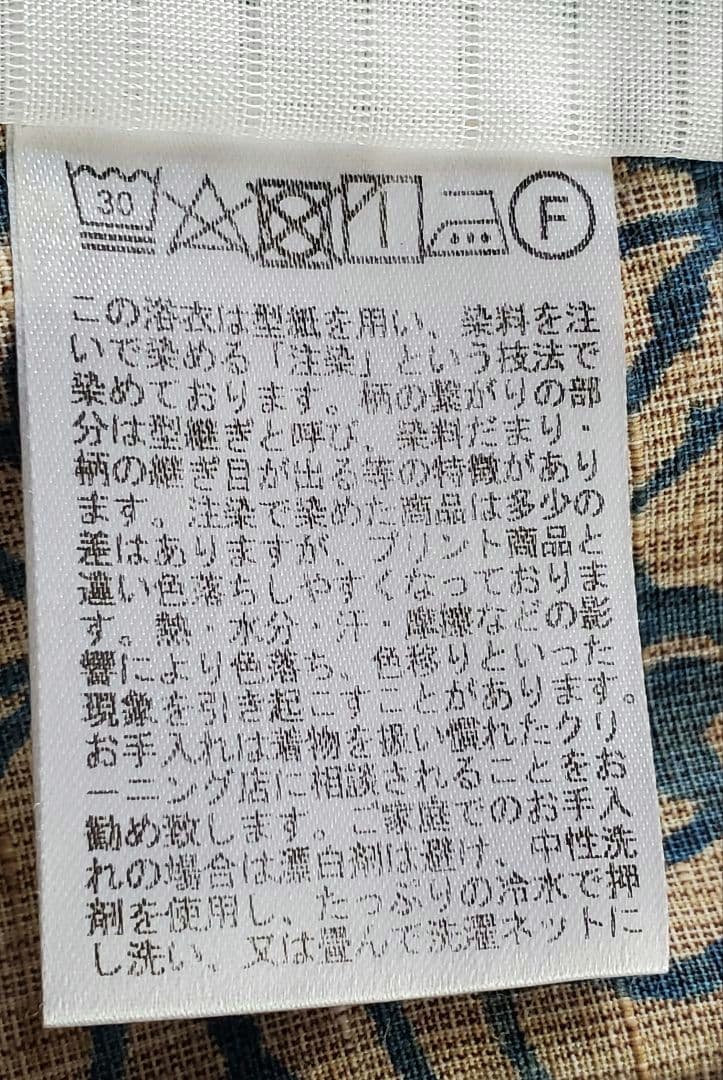 30
F
この浴衣は型紙を用い、染料を注
いで染める「注染」という技法で
染めております。柄の繋がりの部
分は型継ぎと呼び、染料だまり・
柄の継ぎ目が出る等の特徴があり
ます。注染で染めた商品は多少の
差はありますが、プリント商品と
違い色落ちしやすくなっておりま
す。熱・水分・汗・摩擦などの影
響により色落ち、色移りといった
現象を引き起こすことがあります。
お手入れは着物を扱い慣れたクリ
ーニング店に相談されることをお
勧め致します。ご家庭でのお手入
れの場合は漂白剤は避け、中性洗
剤を使用し、たっぷりの冷水で押
し洗い、又は畳んで洗濯ネットに